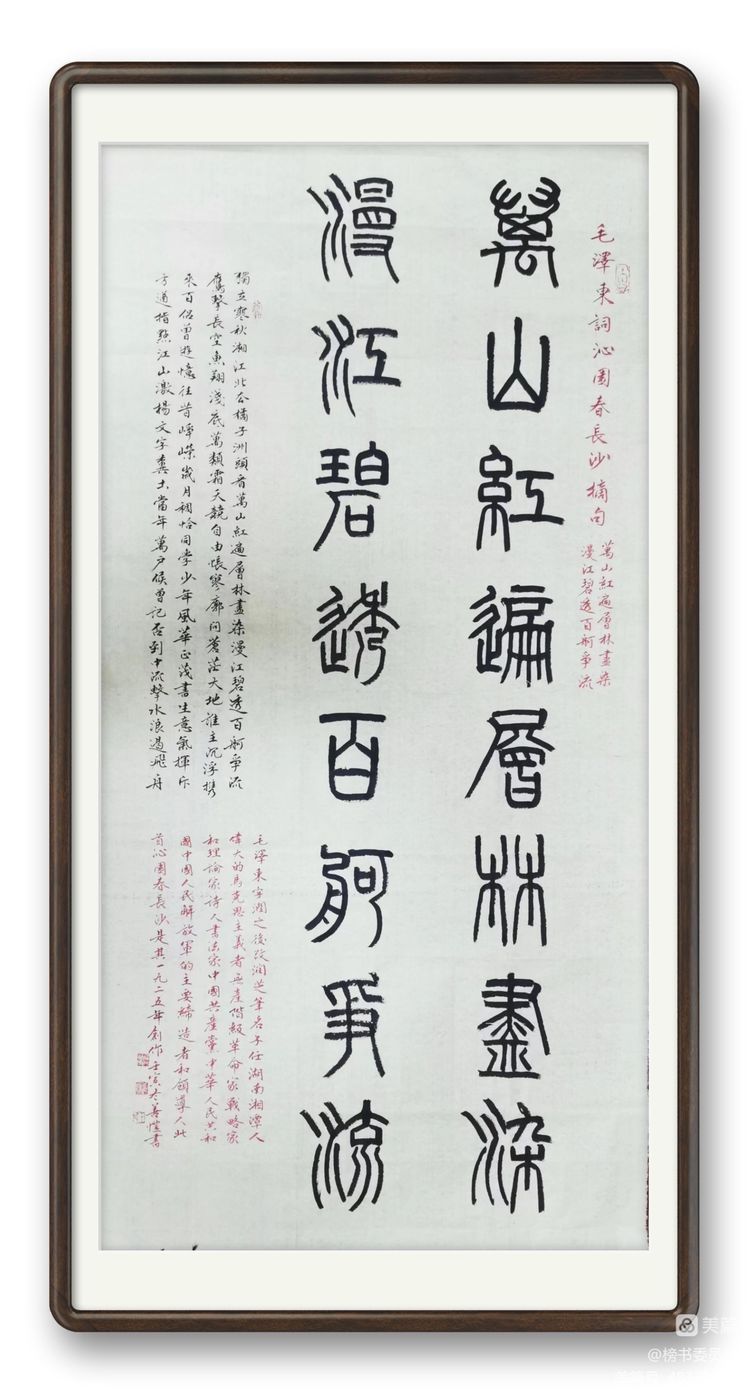 毛澤東詞沁園春長沙摘句
萬山紅遍層林盡染
漫江碧透百舸爭流
萬山紅遍層林盡染
漫江碧透百舸爭流
獨立寒秋湘江北去橘子洲頭看萬山紅遍層林盡染漫江碧透百舸爭流
鷹擊長空魚翔淺底萬類霜天競自由悵寥廓問蒼茫大地誰主沉浮携
來百侶曾遊憶往昔崢嶸歲月稠恰同學少年風華正茂書生意氣揮斥
方遒指點江山激揚文字糞土當年萬户侯曾記否到中流擊水浪遏飛舟
毛澤東字潤之後改潤芝筆名子任湖南湘潭人
偉大的馬克思主義者無產階級革命家戰略家
和理論家詩人書法家中國共產黨中華人民共和
國中國人民解放軍的主要締造者和領導人此
首沁園春長沙是其一九二五年創作壬寅冬善愷書
美篇
@榜书委员